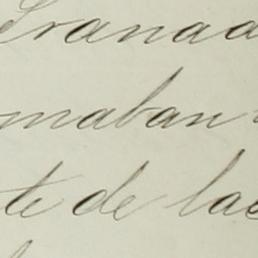 Granad
maban
te de las